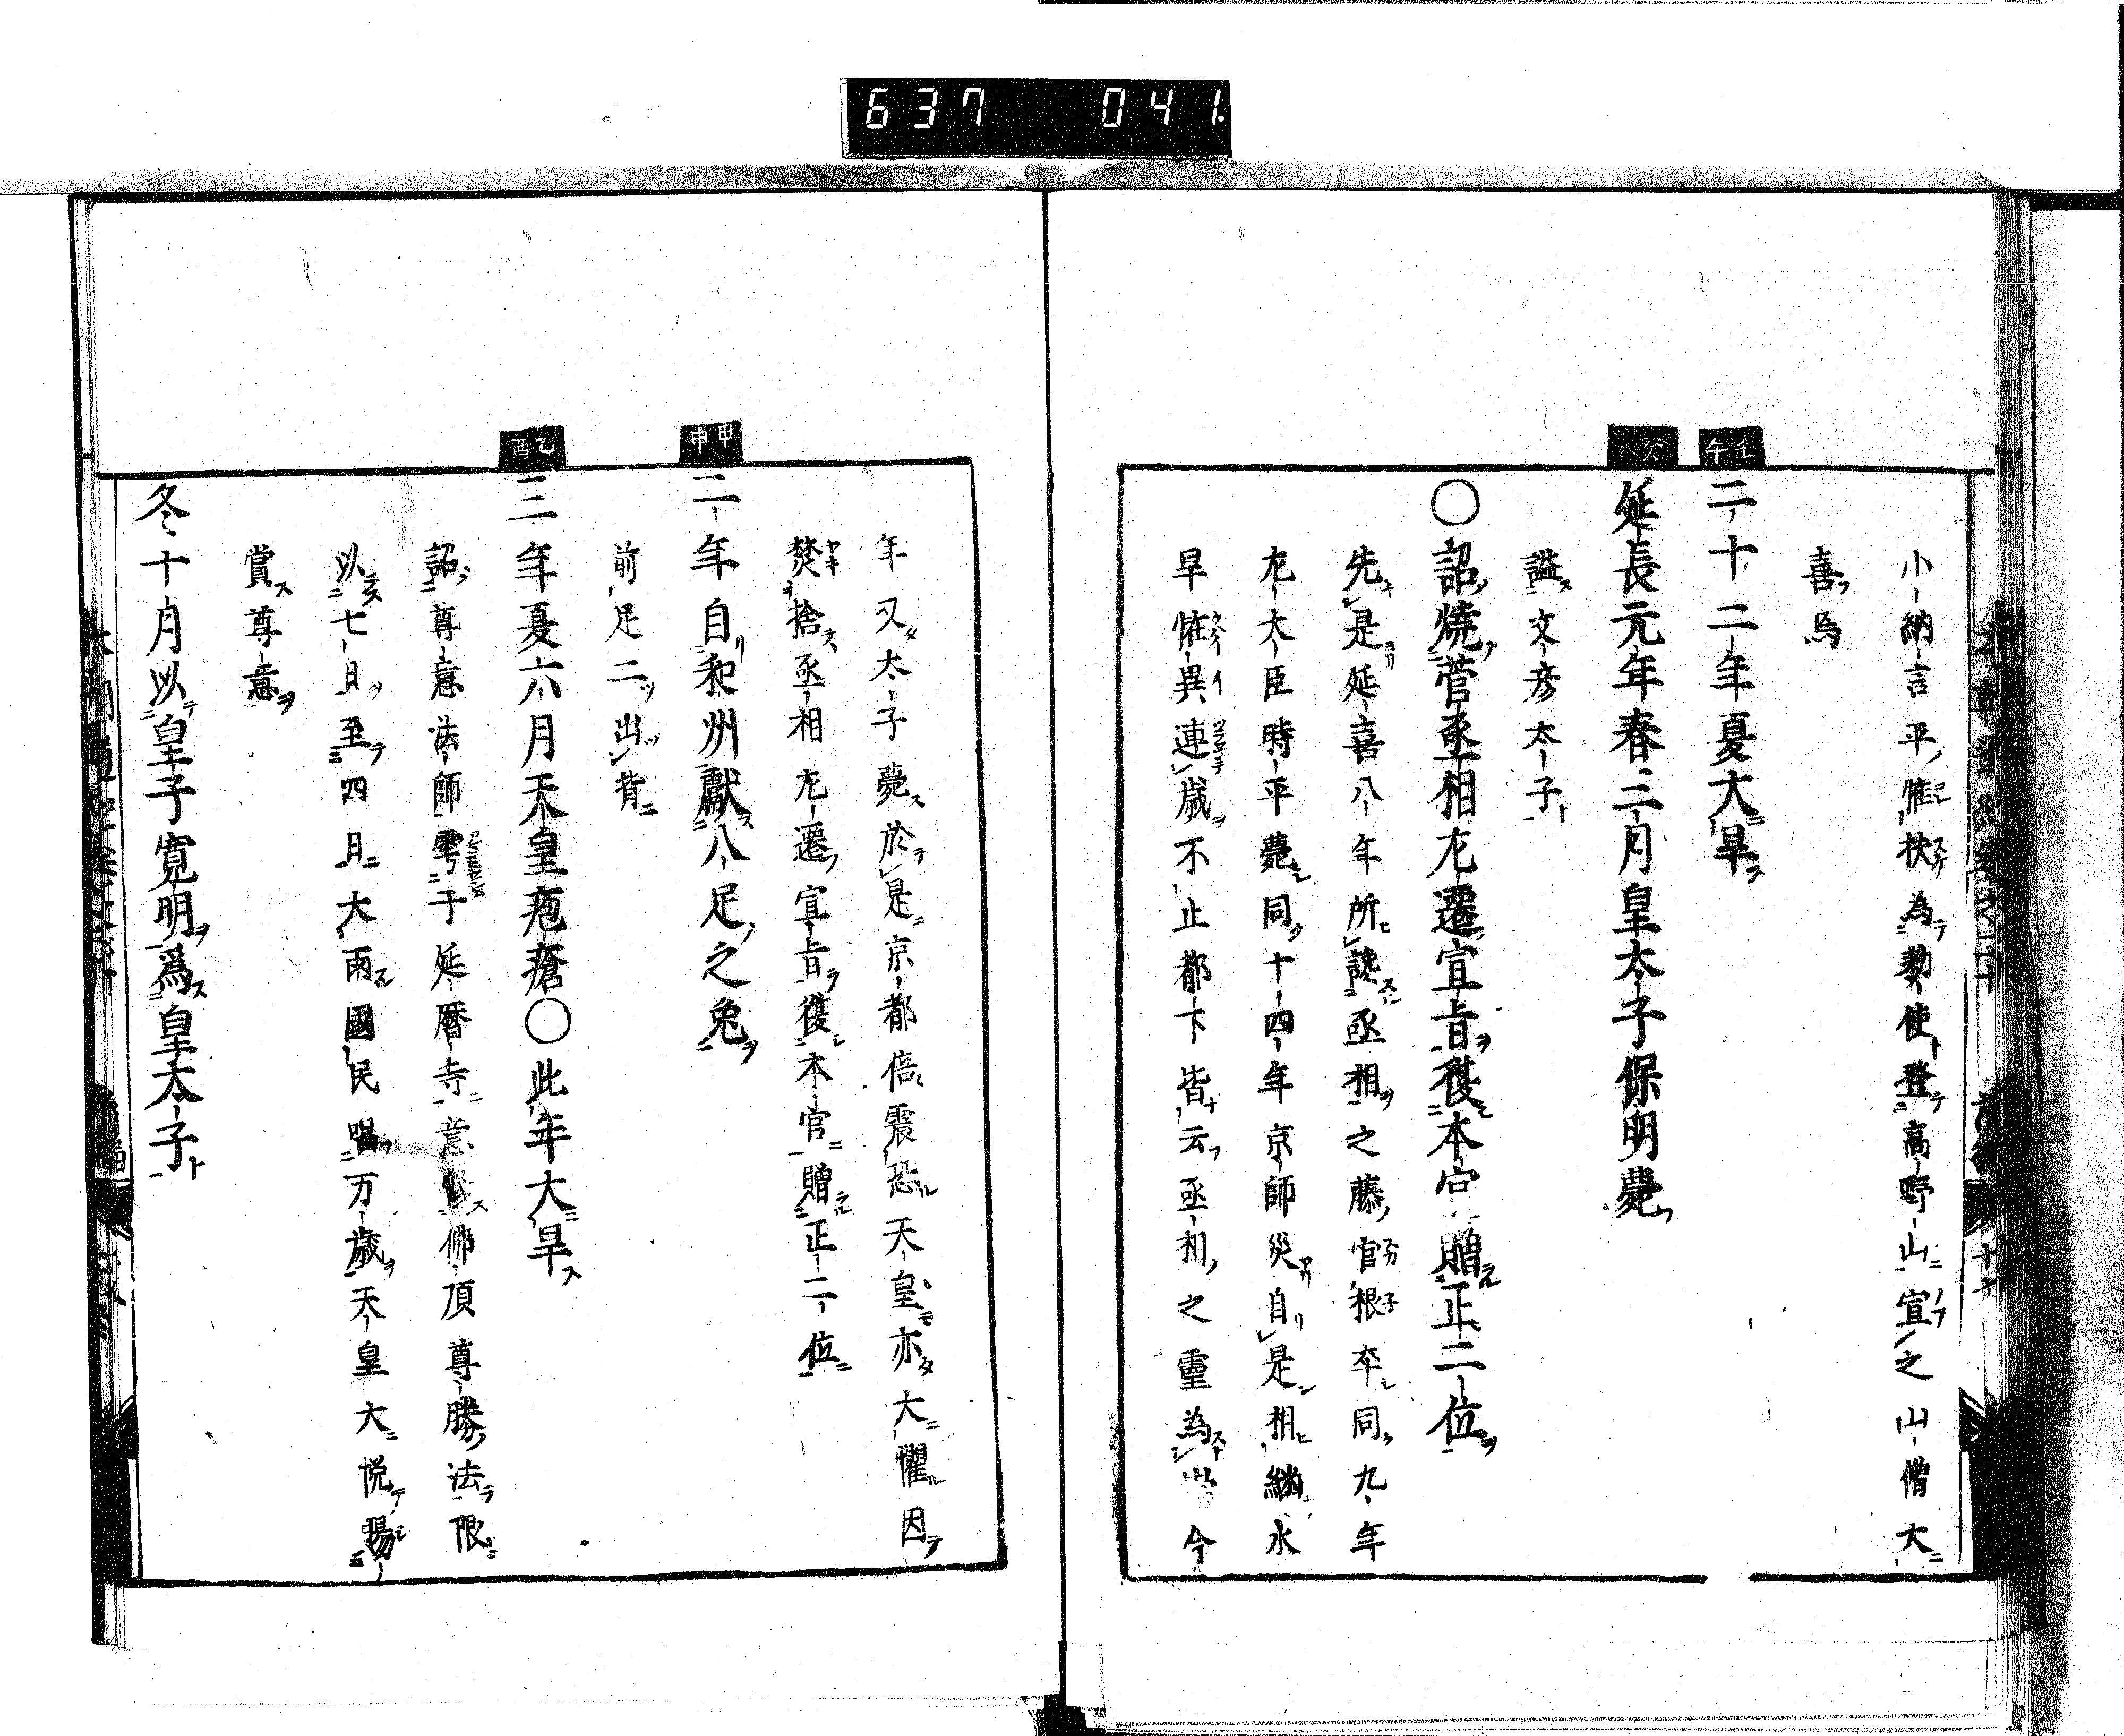 637 041.
小納言平惟扶為勅使登高野山宣之山僧大
喜焉
壬午
二十二年夏大旱
癸
延長元年春三月皇太子保明薨
諡文彦太子
〇詔燒菅丞相左遷宣旨復本官贈正二位
先是延喜八年所讒丞相之藤官根卒同九年
左大臣時平薨同十四年京師災自是相繼水
旱恠異連歲不止都下皆云丞相之靈為 今
年又太子薨於是京都倍震恐天皇亦大懼因
焚捨丞相左遷宣旨復本官贈正二位
甲申
二年自和州獻八足之兔
前足二出背
乙酉
三年夏六月天皇疱瘡〇此年大旱
詔尊意法師雩于延暦寺意 佛頂尊勝法限
以七日至四日大雨國民唱万歲天皇大悦揚
賞尊意
冬十月以皇子寛明爲皇太子